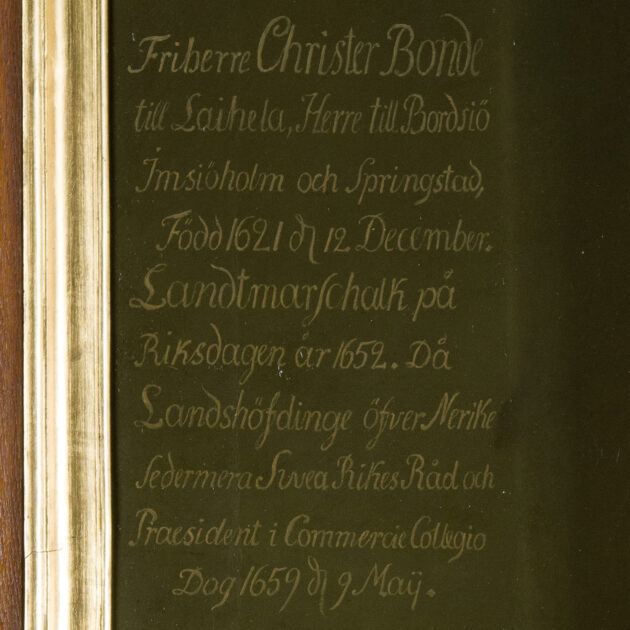 Friherre Christer Bonde
till Laihela, Herre till Bordsiö
Imsiöholm och Springstad,
Född 1621 d 12 December.
Landtmarschalk på
Riksdagen år 1652. Då
Landshöfdinge öfver Nerike
sedermera Svea Rikes Råd och
Praesident i Commercie Collegio
Dog 1659 d 9 Maÿ.